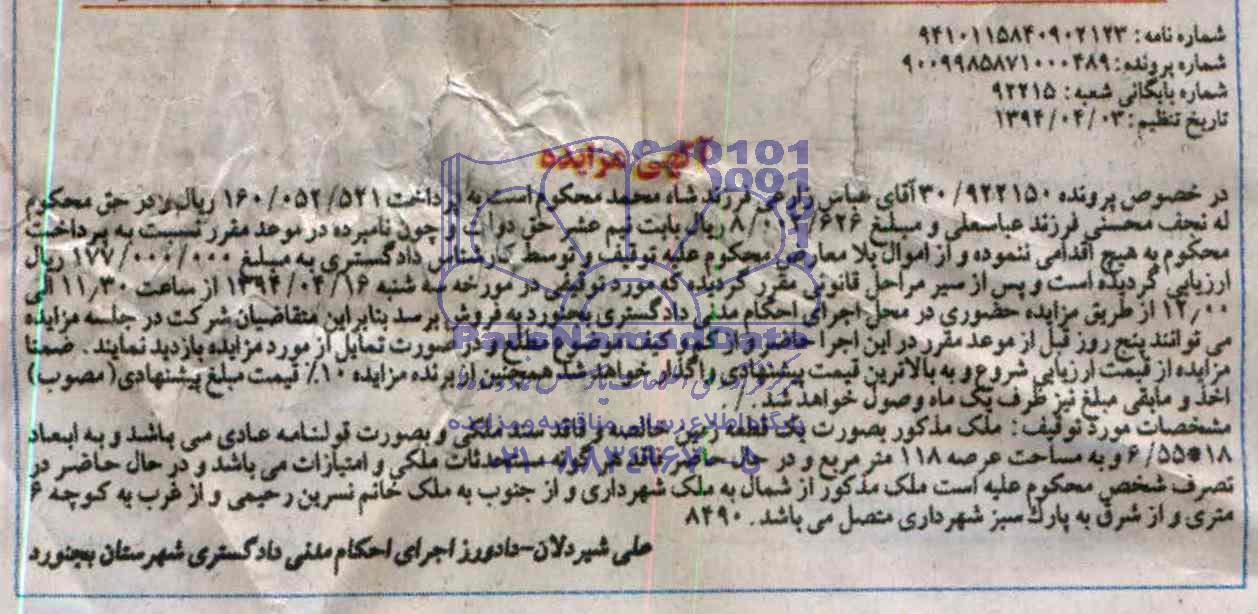 شماره نامه: ۹۴۱۰۱۱۵۸۴۰۹۰۲۱۲۳
شماره پرونده: ۹۰۰۹۹۸۵۸۷۱۰۰۰۴۸۹
شماره بایگانی شعبه: ۹۲۲۱۵
تاریخ تنظیم: ۱۳۹۴/۰۴/۰۳
آگهی مزایده
در خصوص پرونده ۳۰/۹۲۲۱۵۰ آقای عباس زارعی فرزند شاه محمد محکوم است به پرداخت ۱۶۰/۰۵۲/۵۲۱ ریال در حق محکوم
له نجف محسنی فرزند عباسعلی و مبلغ ریال بابت نیم عشر حق دولت و چون نامبرده در موعد مقرر نسبت به پرداخت
محکوم به هیچ اقدامی ننموده و از اموال بلا معارض محکوم علیه توقیف و توسط کارشناس دادگستری به مبلغ ۱۷۷/۰۰۰/۰۰۰ ریال
ارزیابی گردیده است و پس از سیر مراحل قانونی مقرر گردیده که مورد توقیفی در مورخه سه شنبه ۱۳۹۴/۰۴/۱۶ از ساعت ۱۱٫۳۰ الی
۱۲٫۰۰ از طریق مزایده حضوری در محل اجرای احکام مدنی دادگستری بجنورد به فروش برسد بنابراین متقاضیان شرکت در جلسه مزایده
می توانند پنج روز قبل از موعد مقرر در این اجرا حاضر و از کم و کیف موضوع مطلع و در صورت تمایل از مورد مزایده بازدید نمایند. ضمنا
مزایده از قیمت ارزیابی شروع و به بالاترین قیمت پیشنهادی واگذار خواهد شد همچنین از برنده مزایده ۱۰٪ قیمت مبلغ پیشنهادی(مصوب)
اخذ و مابقی مبلغ نیز ظرف یک ماه وصول خواهد شد.
مشخصات مورد توقیف: ملک مذکور بصورت یک قطعه زمین خالصه و فاقد سند ملکی و بصورت قولنامه عادی می باشد و به ابعاد
۱۸*۶/۵۵ و به مساحت عرصه ۱۱۸ متر مربع و در حال حاضر فاقد هر گونه مستحدثات ملکی و امتیازات می باشد و در حال حاضر در
تصرف شخص محکوم علیه است ملک مذکور از شمال به ملک شهرداری و از جنوب به ملک خانم نسرین رحیمی و از غرب به کوچه ۶
متری و از شرق به پارک سبز شهرداری متصل می باشد. ۸۴۹۰
علی شیردلان-دادورز اجرای احکام مدنی دادگستری شهرستان بجنورد
ParsNamadData
پایگاه اطلاع رسانی مناقصه و مزایده
۰۲۱-۸۸۳۴۹۶۷۰-۵